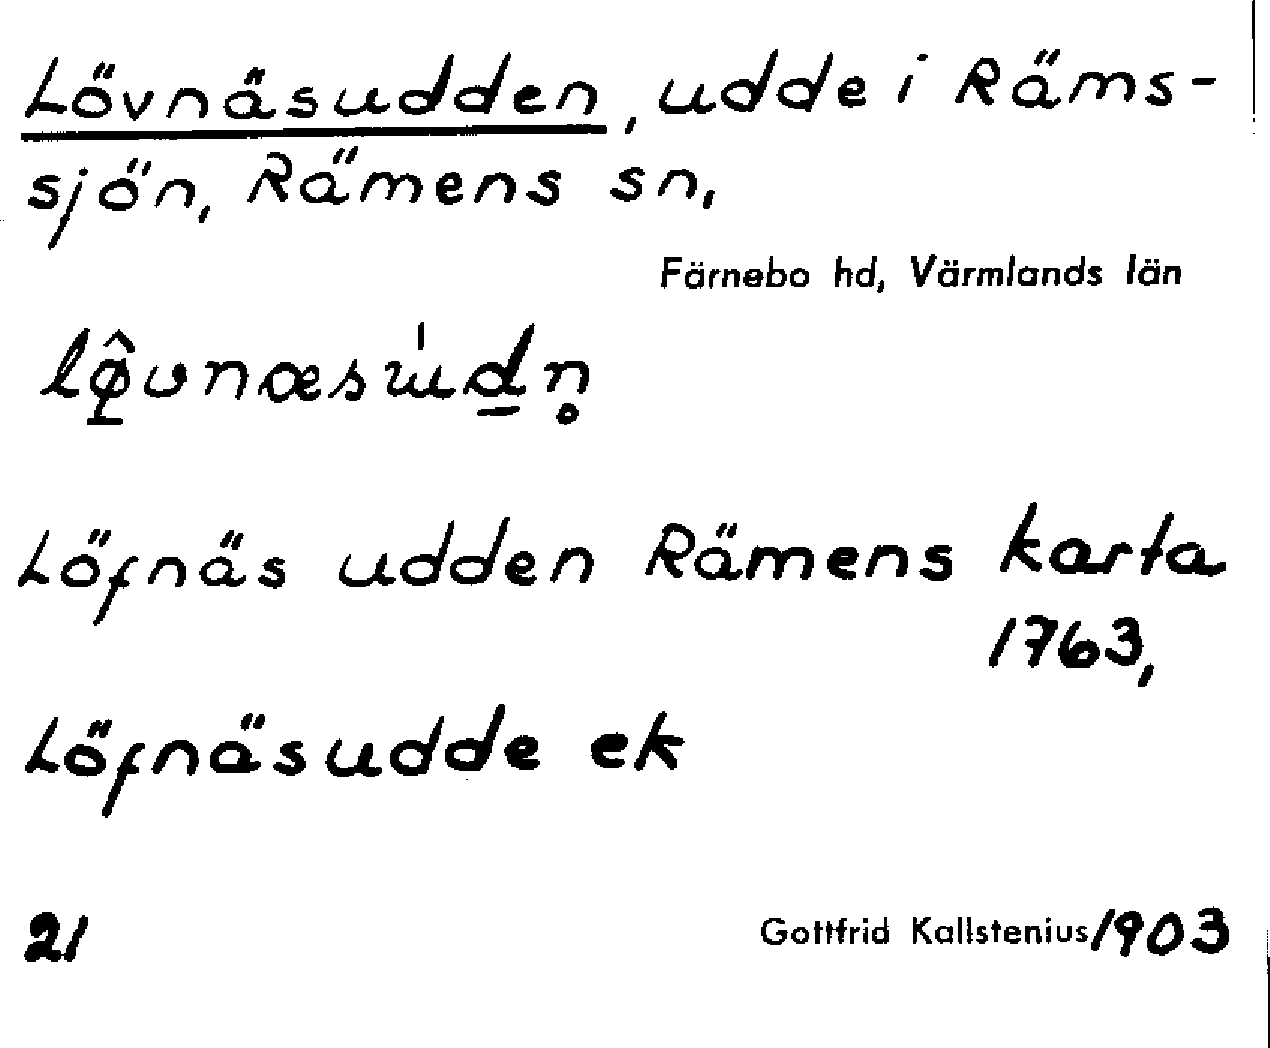 Lövnäsudden, udde i Räms-
sjön, Rämens sn,
Färnebo hd, Värmlands län
Löfnäs udden Rämens karta
1763,
Löfnäsudde ek
21 Gottfrid Kallstenius/1903